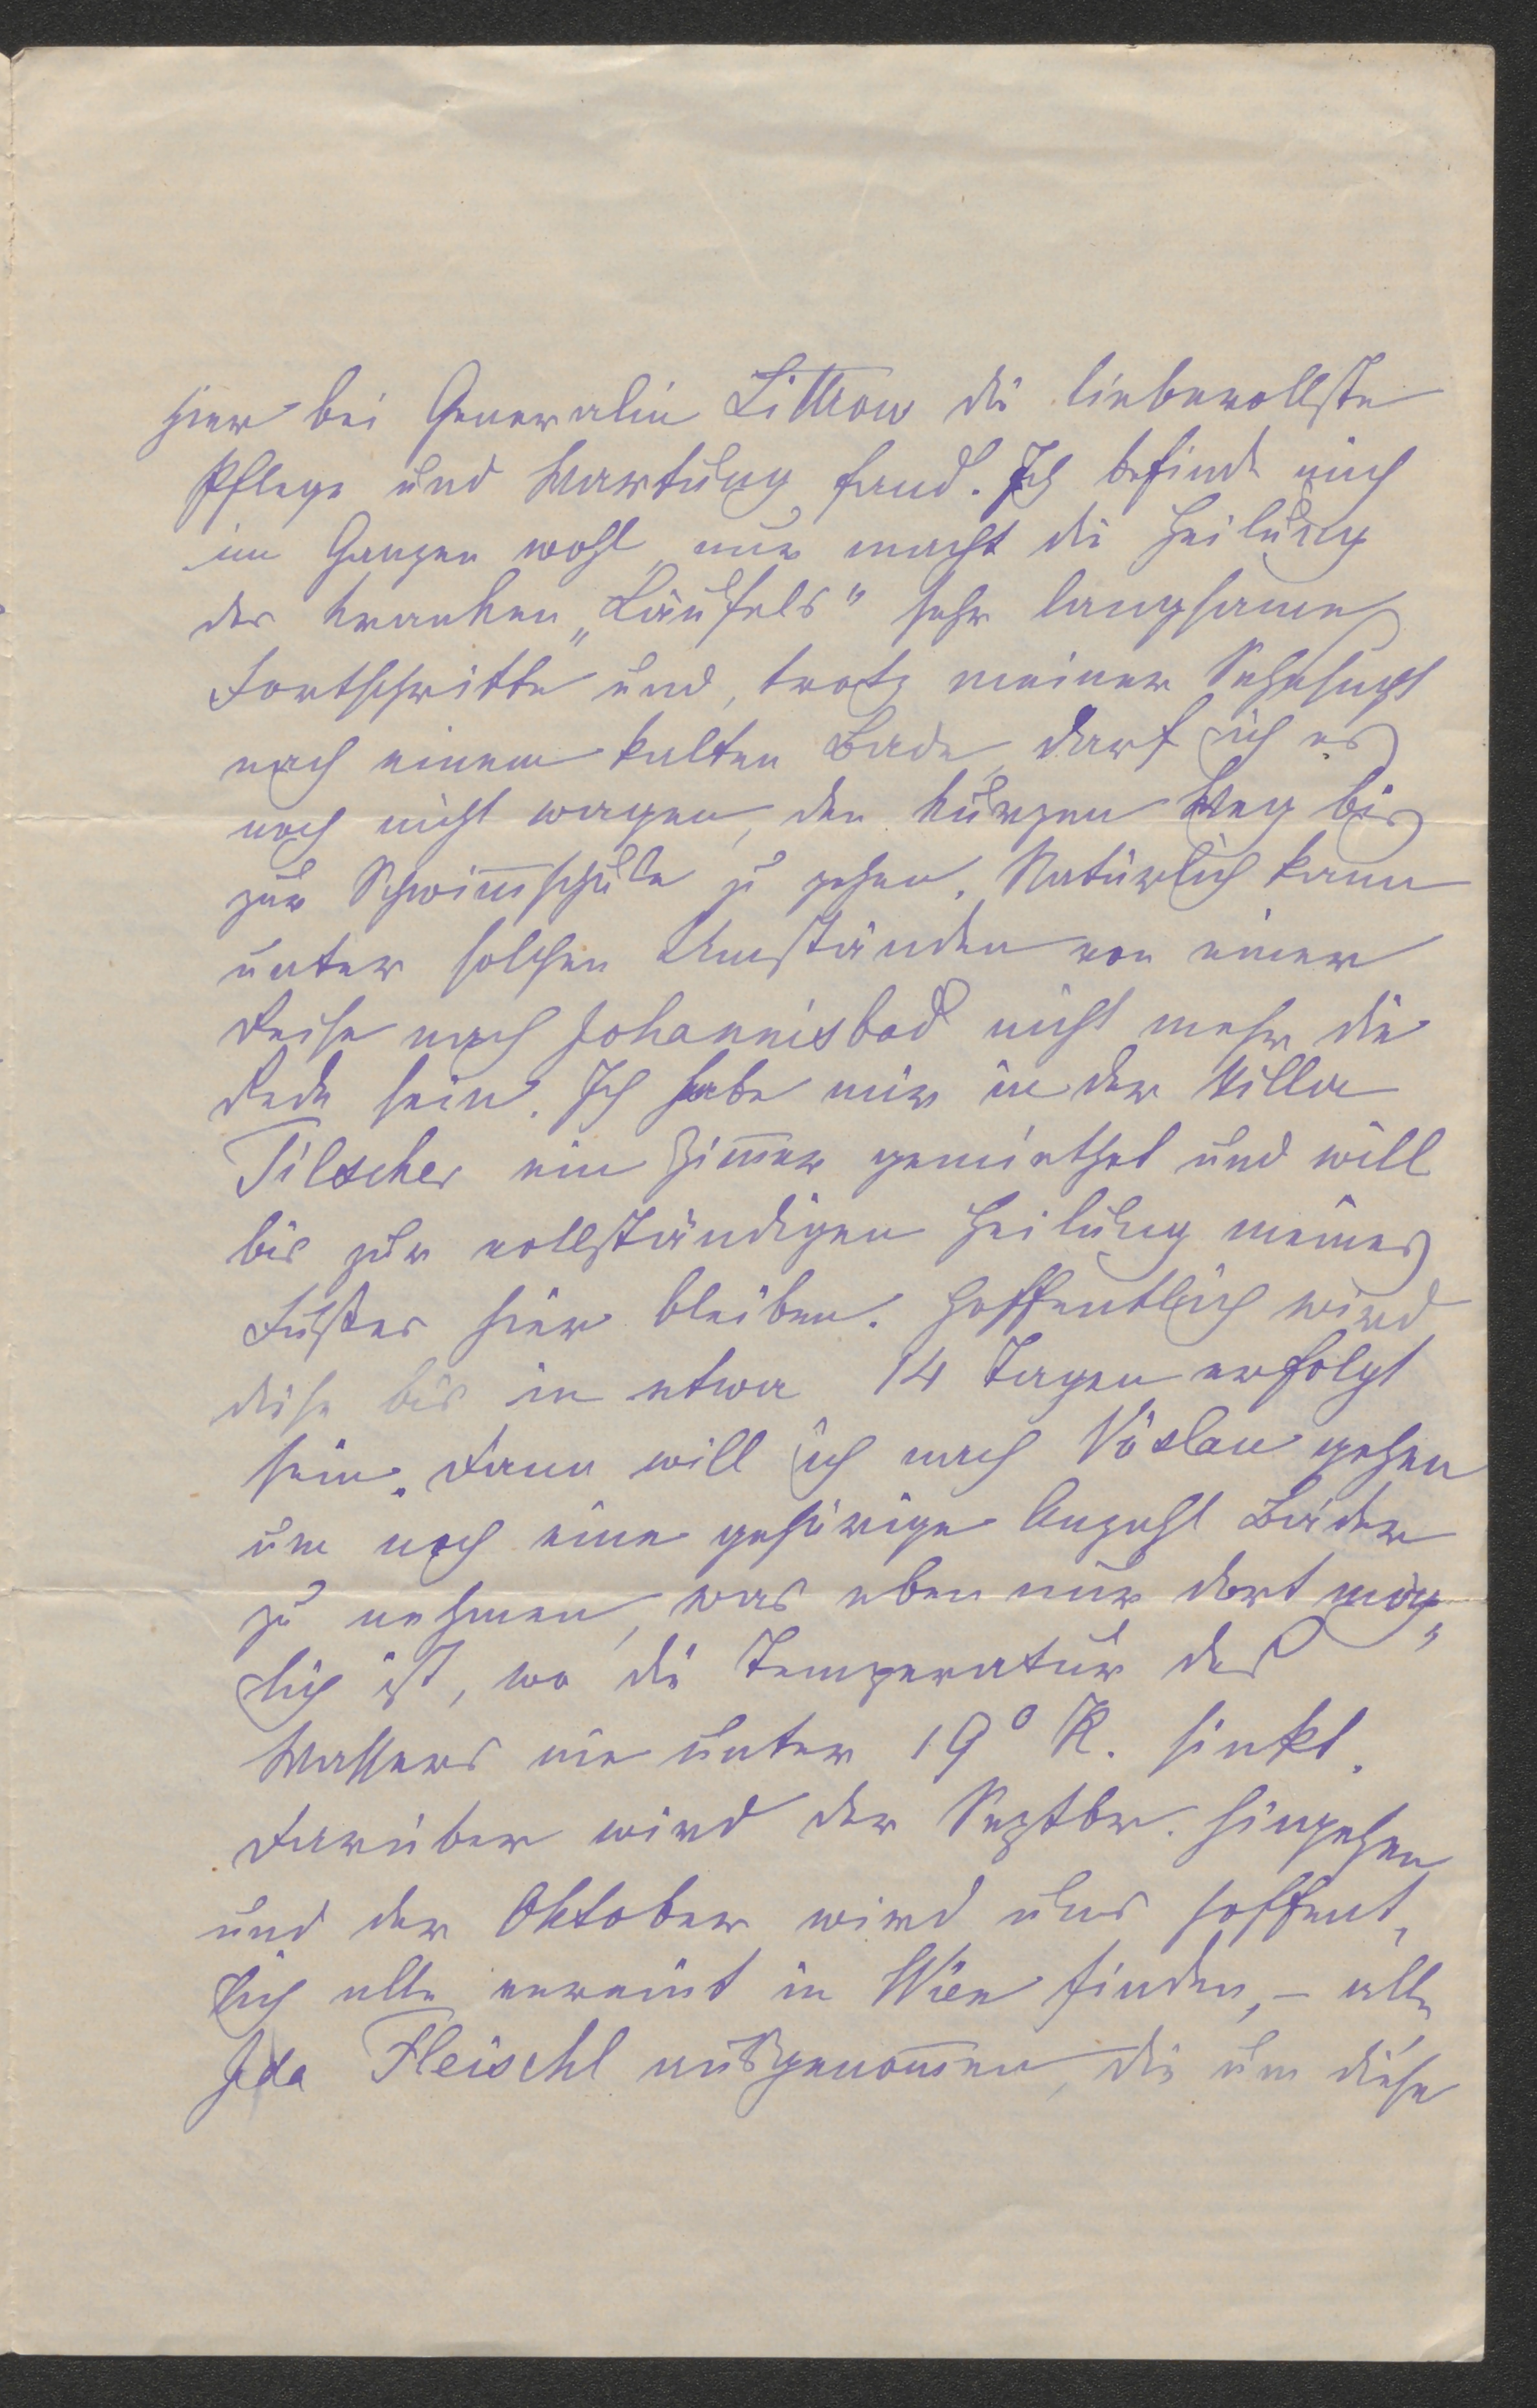 hier bei Generalin Littrow die liebevollste
Pflege und Wartung fand. Ich befinde mich
im Ganzen wohl, nur macht die Heilung
des kranken „Läufels" sehr langsame
Fortschritte und, trotz meiner Sehnsucht
nach einem kalten Bade, darf ich es
noch nicht wagen, den kurzen Weg bis
zur Schwim̅schule zu gehen. Natürlich kann
unter solchen Umständen von einer
Reise nach Johannisbad nicht mehr die
Rede sein. Ich habe mir in der Villa
Tilscher ein Zim̅er gemiethet und will
bis zur vollständigen Heilung meines
Fußes hier bleiben. Hoffentlich wird
diese bis in etwa 14 Tagen erfolgt
sein. Dann will ich nach Vöslau gehen
um noch eine gehörige Anzahl Bäder
zu nehmen, was eben nur dort mög„
lich ist, wo die Temperatur des
Wassers nie unter 19° R. sinkt.
Darüber wird der Septbr. hingehen
und der Oktober wird uns hoffent„
lich alle vereint in Wien finden, – alle
Ida Fleischl ausgenom̅en, die um diese